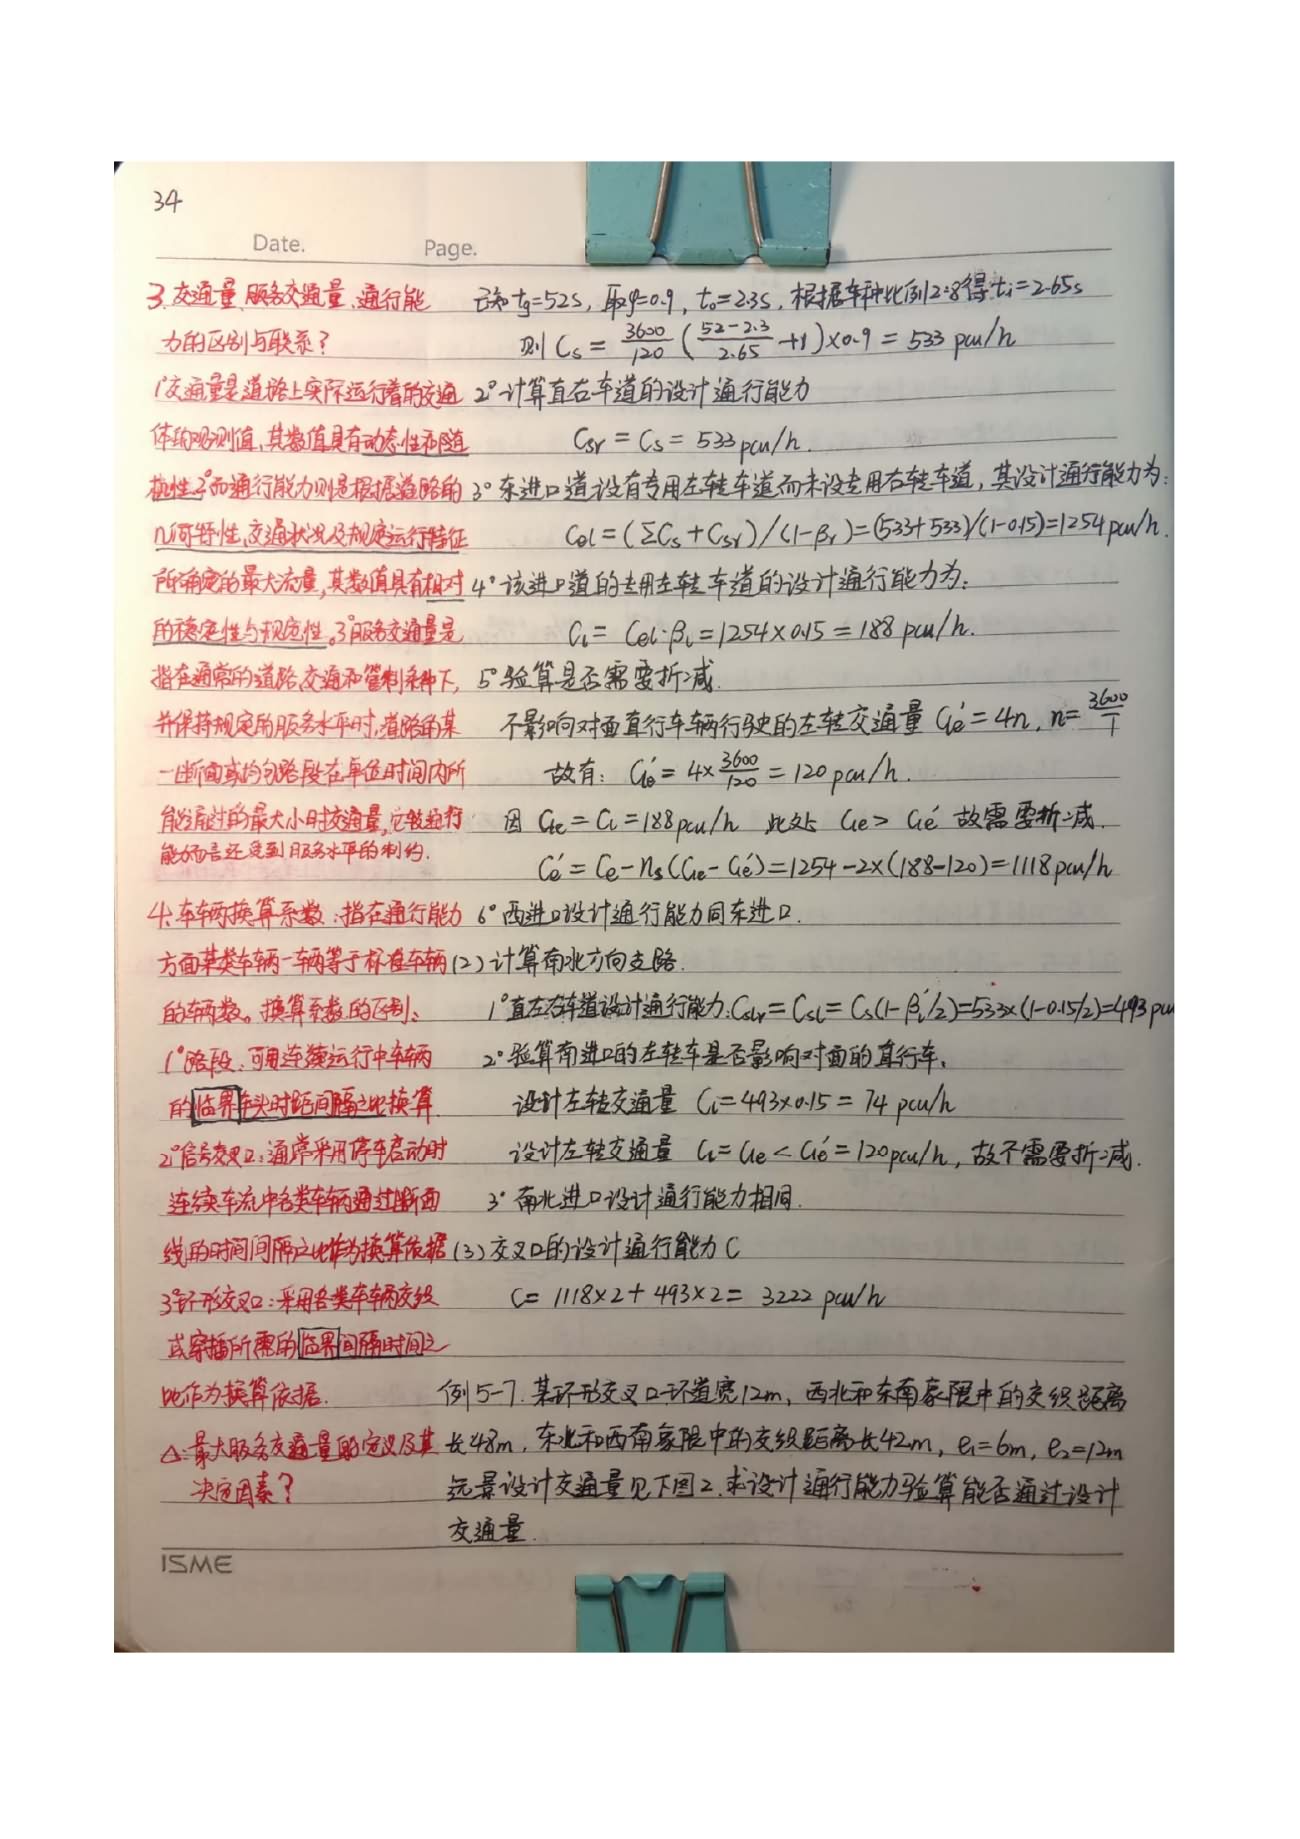 34
Date. Page.
3. 交通量、服务交通量、通行能
力的区别与联系？
1°交通量是道路上实际运行着的交通
体的观测值，其数值具有动态性和随
机性。2°而通行能力则是根据道路的
几何特性、交通状况及规定运行特征
所确定的最大流量，其数值具有相对
的稳定性与规定性。3°服务交通量是
指在通常的道路、交通和管制条件下，
并保持规定的服务水平时，道路的某
一断面或均匀路段在单位时间内所
能通过的最大小时交通量，它较通行
能力而言还受到服务水平的制约．
4. 车辆换算系数：指在通行能力
方面某类车辆一车辆等于标准车辆
的车辆数。换算系数的区别：
1°路段：可用连续运行中车辆
的临界车头时距间隔之比换算．
2°信号交叉口：通常采用停车启动时
连续车流中各类车辆通过断面
线的时间间隔之比作为换算依据
3°环形交叉口：采用各类车辆交织
或穿插所需的临界间隔时间之
比作为换算依据．
△：最大服务交通量的定义及其
决定因素？
已知 tg=52s，取φ=0.9，t₀=2.3s，根据车种比例2:8得 tᵢ=2.65s
则 Cs = 3600/120 ( (52-2.3)/2.65 +1)×0.9 = 533 pcu/h
2° 计算直右车道的设计通行能力
Csr = Cs = 533 pcu/h.
3° 东进口道设有专用左转车道而未设专用右转车道，其设计通行能力为：
Cel = (ΣCs + Csr)/(1-βl) = (533+533)/(1-0.15) = 1254 pcu/h.
4° 该进口道的专用左转车道的设计通行能力为：
Cl = Cel·βl = 1254×0.15 = 188 pcu/h.
5° 验算是否需要折减．
不影响对面直行车辆行驶的左转交通量 Cle′ = 4n，n= 3600/T
故有：Cle′ = 4× 3600/120 = 120 pcu/h.
因 Cle = Cl = 188 pcu/h 此处 Cle > Cle′ 故需要折减．
Ce′ = Ce - ns(Cle - Cle′) = 1254 - 2×(188-120) = 1118 pcu/h
6° 西进口设计通行能力同东进口．
(2) 计算南北方向支路．
1° 直左右车道设计通行能力：Cslr = Csl = Cs(1-βl′/2)=533×(1-0.15/2)=493 pcu
2° 验算南进口的左转车是否影响对面的直行车．
设计左转交通量 Cl = 493×0.15 = 74 pcu/h
设计左转交通量 Cl = Cle < Cle′ = 120 pcu/h，故不需要折减．
3° 南北进口设计通行能力相同．
(3) 交叉口的设计通行能力 C
C = 1118×2 + 493×2 = 3222 pcu/h
例5-7．某环形交叉口环道宽12m，西北和东南象限中的交织距离
长48m，东北和西南象限中的交织距离长42m，e₁=6m，e₂=12m
远景设计交通量见下图2．求设计通行能力验算能否通过设计
交通量．
ISME